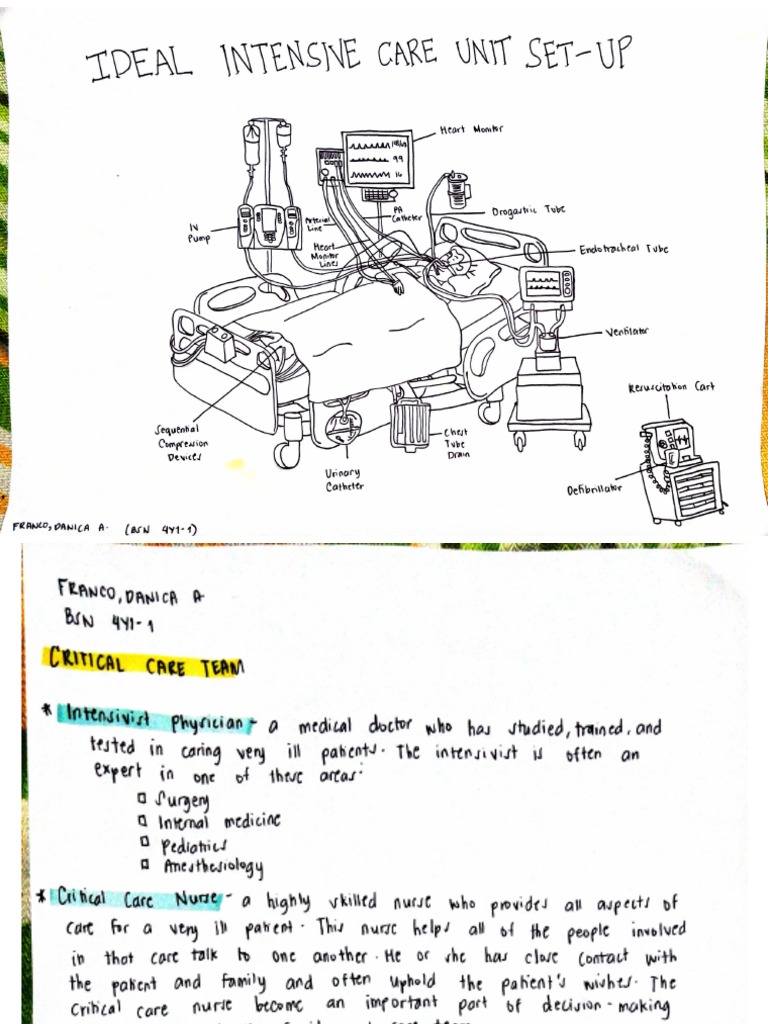 IDEAL INTENSIVE CARE UNIT SET-UP
Heart Monitor
99
16
Orogastric Tube
PA
Catheter
Arterial
Line
IV
Pump
Heart
Monitor
Lines
Endotracheal Tube
Ventilator
Resuscitation Cart
Sequential
Compression
Devices
Chest
Tube
Drain
Urinary
Catheter
Defibrillator
FRANCO, DANICA A. (BSN 4Y1-1)
FRANCO, DANICA A
BSN 4Y1-1
CRITICAL CARE TEAM
* Intensivist Physician - a medical doctor who has studied, trained, and
tested in caring very ill patients. The intensivist is often an
expert in one of these areas:
□ Surgery
□ Internal medicine
□ Pediatrics
□ Anesthesiology
* Critical Care Nurse - a highly skilled nurse who provides all aspects of
care for a very ill patient. This nurse helps all of the people involved
in that care talk to one another. He or she has close contact with
the patient and family and often uphold the patient's wishes. The
critical care nurse become an important part of decision-making